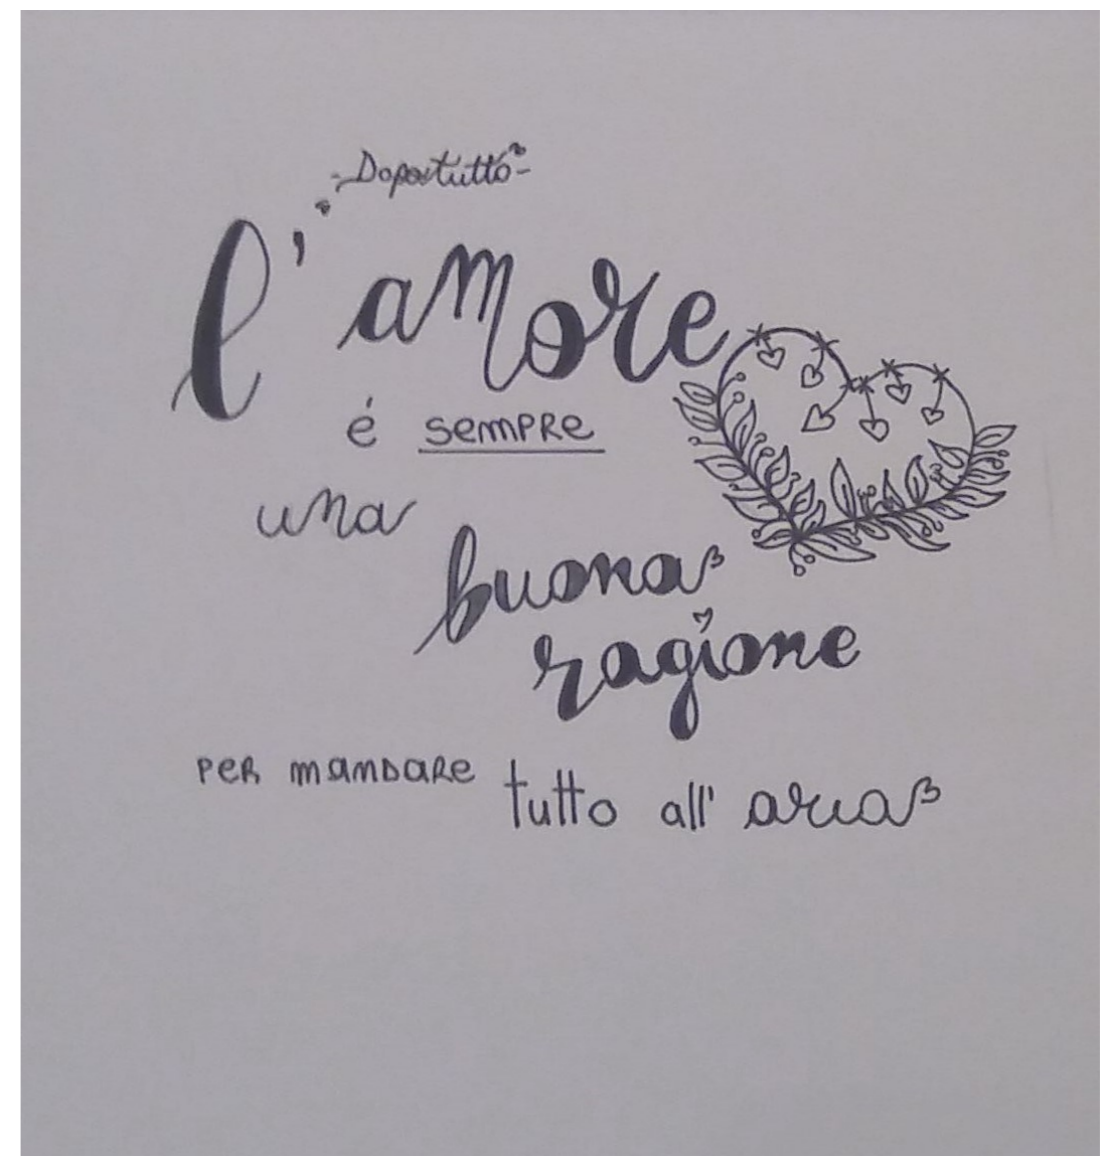 -Dopotutto-
l'amore
é sempre
una
buona
ragione
per mandare
tutto all'aria